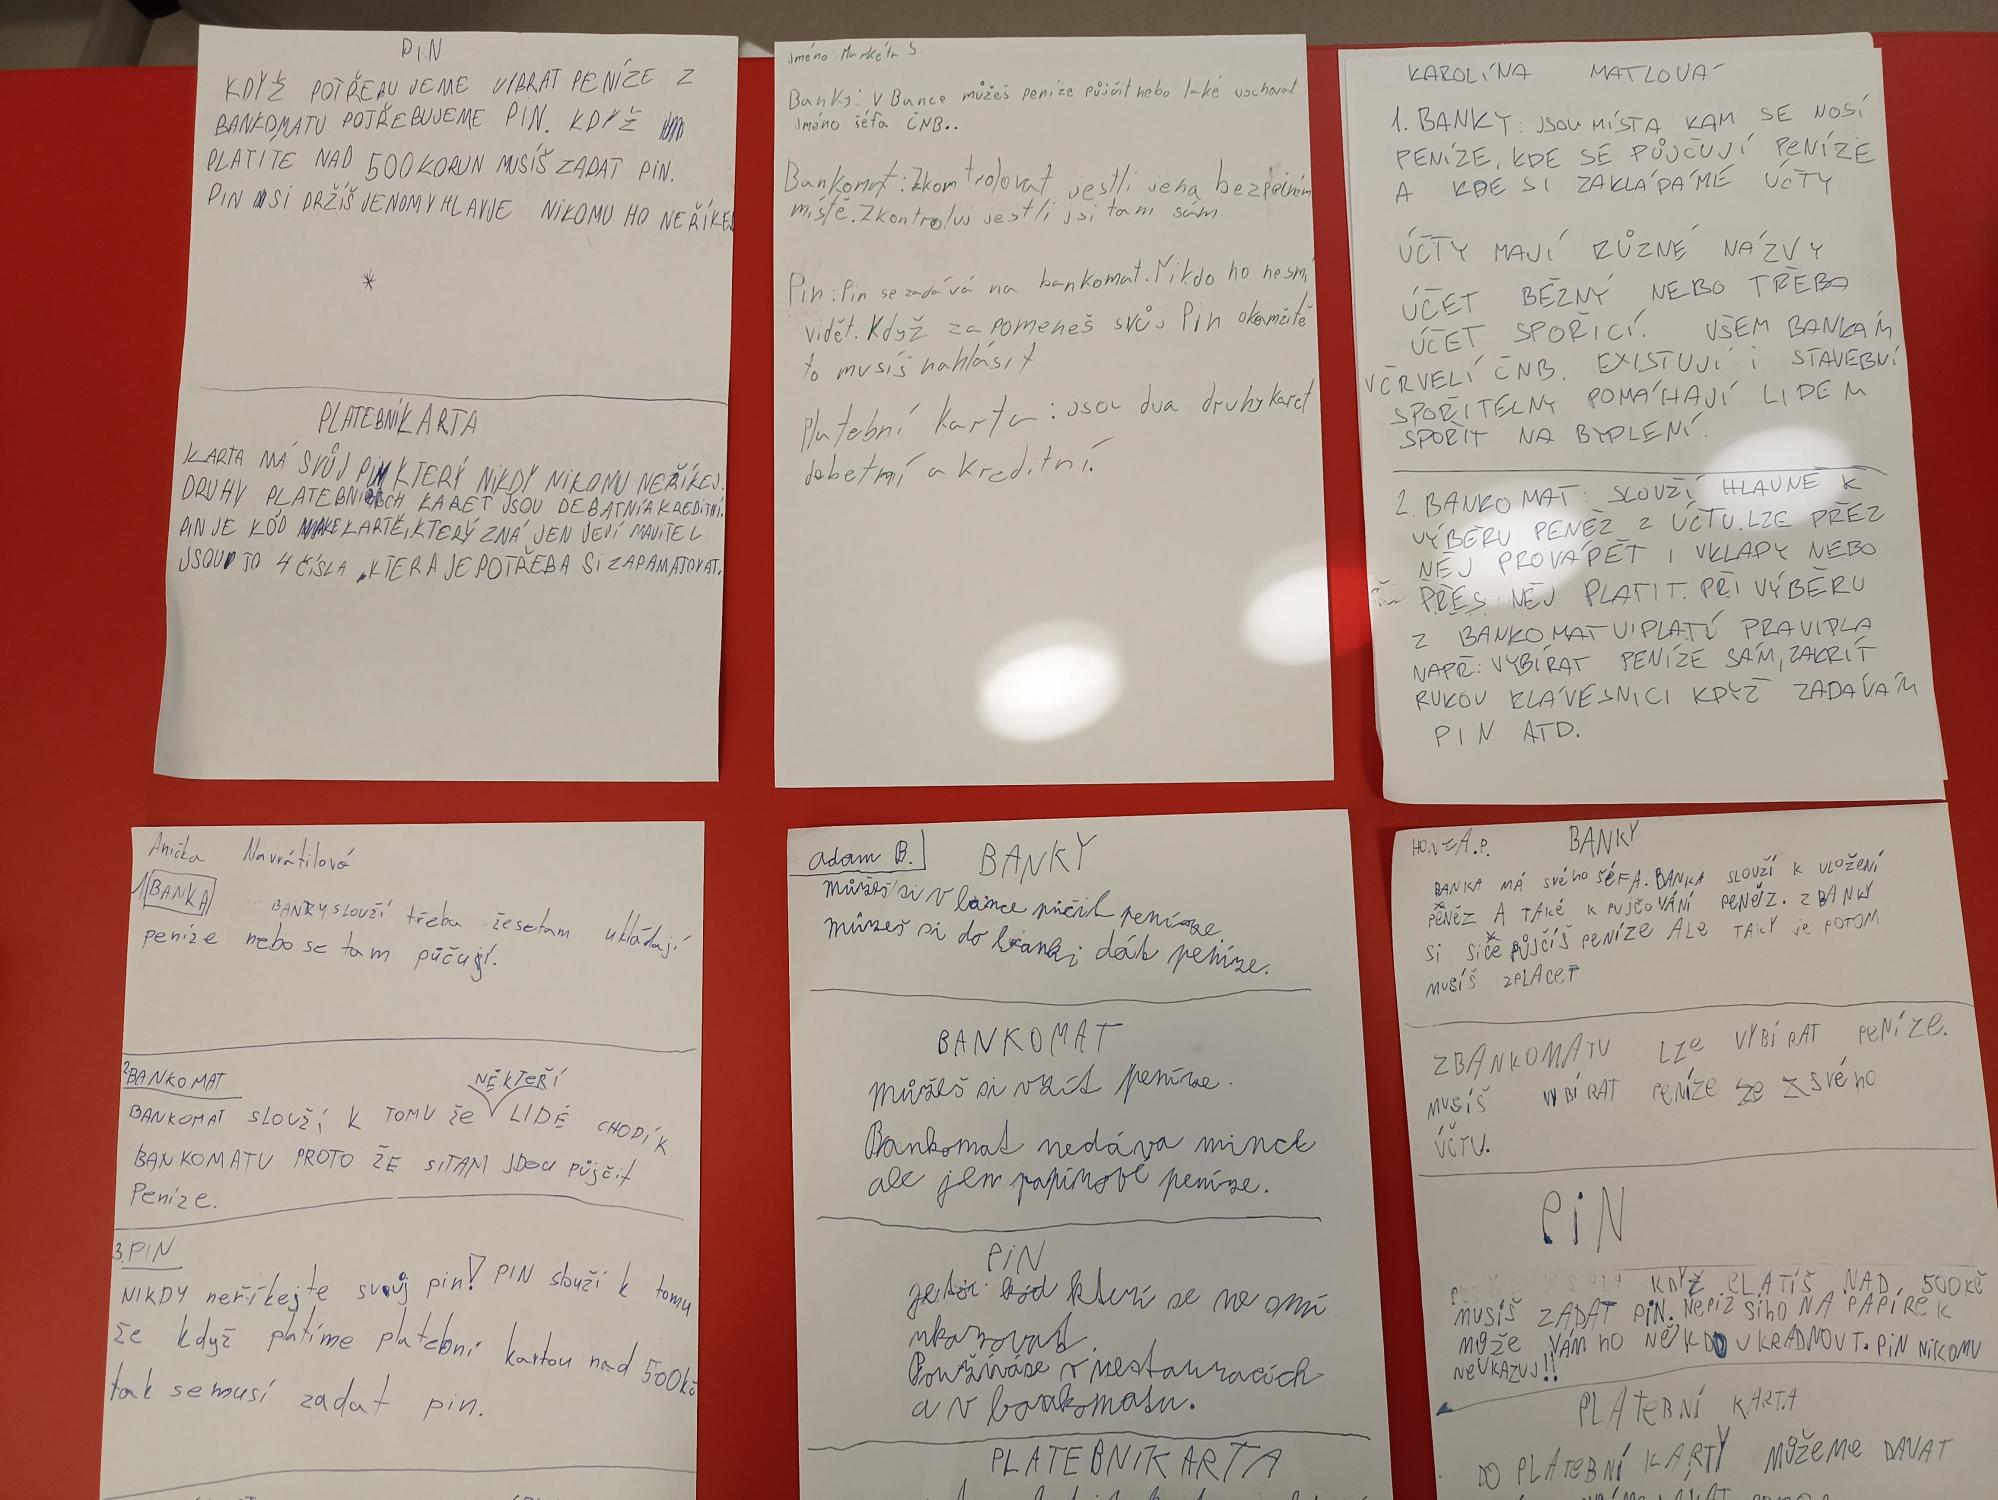 PIN
KDYŽ POTŘEBUJEME VIBRAT PENÍZE Z
BANKOMATU POTŘEBUJEME PIN. KDYŽ
PLATÍTE NAD 500 KORUN MUSÍŠ ZADAT PIN.
PIN SI DRŽÍŠ JENOMV HLAVJE NIKOMU HO NEŘÍKEJ
*
PLATEBNÍKARTA
KARTA MÁ SVŮJ PIN KTERÝ NIKDY NIKOMU NEŘÍKEJ.
DRUHY PLATEBNÍCH KARET JSOU DEBATNÍA KREDITNÍ.
PIN JE KÓD KARTĚ, KTERÝ ZNÁ JEN JEJÍ MAJITEL
JSOU TO 4 ČÍSLA, KTERÁ JE POTŘEBA SI ZAPAMATOVAT.
Jméno: Markéta S.
Banky: V Bance můžeš peníze půjčit nebo také uschovat
Jméno šéfa ČNB..
Bankomat: Zkontrolovat jestli jena bezpečném
místě. Zkontroluj jestli jsi tam sám.
Pin: Pin se zadává na bankomat. Nikdo ho nesmí
vidět. Když zapomeneš svůj Pin okamžitě
to musíš nahlásit
Platební karta: jsou dva druhy karet
dobetmí a kreditní.
KAROLÍNA MATLOVÁ
1. BANKY: JSOU MÍSTA KAM SE NOSÍ
PENÍZE, KDE SE PŮJČUJÍ PENÍZE
A KDE SI ZAKLÁDÁME ÚČTY
ÚČTY MAJÍ RŮZNÉ NÁZVY
ÚČET BĚŽNÝ NEBO TŘEBA
ÚČET SPOŘICÍ. VŠEM BANKÁM
VČRVELÍ ČNB. EXISTUJÍ I STAVEBNÍ
SPOŘITELNY POMÁHAJÍ LIDEM
SPOŘIT NA BYDLENÍ.
2. BANKOMAT: SLOUŽÍ HLAVNĚ K
VÝBĚRU PENĚZ Z ÚČTU. LZE PŘEZ
NĚJ PROVÁDĚT I VKLADY NEBO
PŘES NĚJ PLATIT. PŘI VÝBĚRU
Z BANKOMATU PLATÍ PRAVIDLA
NAPŘ: VYBÍRAT PENÍZE SÁM, ZAKRÍT
RUKOU KLÁVESNICI KDYŽ ZADÁVÁM
PIN ATD.
Anička Navrátilová
1 BANKA BANKY SLOUŽÍ třeba žesetam ukládají
peníze nebo se tam půčují.
2 BANKOMAT NĚKTEŘÍ
BANKOMAT SLOUŽÍ K TOMU že LIDÉ CHODÍ K
BANKOMATU PROTO ŽE SITAM JDOU půjčit
Peníze.
3. PIN
NIKDY neříkejte svůj pin! PIN slouží k tomu
že když platíme platební kartou nad 500kč
tak se musí zadat pin.
adam B. BANKY
můžeš si v bance půčit peníze
můžeš si do banki dát peníze.
BANKOMAT
můžeš si vzít peníze.
Bankomat nedáva mince
ale jen papírobé peníze.
PIN
kód kterí se ne smí
ukazovat.
Používáse v restauracích
a v bankomatu.
PLATEBNÍKARTA
HONZA.P. BANKY
BANKA MÁ svého ŠÉFA. BANKA SLOUŽÍ K ULOŽENÍ
PENĚZ A TAKÉ K PUJČOVÁNÍ PENĚZ. Z BANKY
SI SICE PŮJČÍŠ PENÍZE ALE TAKY je POTOM
MUSÍŠ ZPLACET
ZBANKOMATU LZe VYBÍRAT PENÍZE.
MUSÍŠ VYBÍRAT PENÍZE Ze Z svého
ÚČTU.
PiN
KDYŽ PLATÍŠ NAD 500KČ
MUSÍŠ ZADAT PiN. NEPIZ SiHO NA PAPÍREK
MŮŽE VÁM HO NĚKDO UKRADNOUT. PiN NiKOMU
NeUKAZUJ!!
PLATEBNÍ KARTA
DO PLATEBNÍ KARTY MŮŽEME DÁVAT